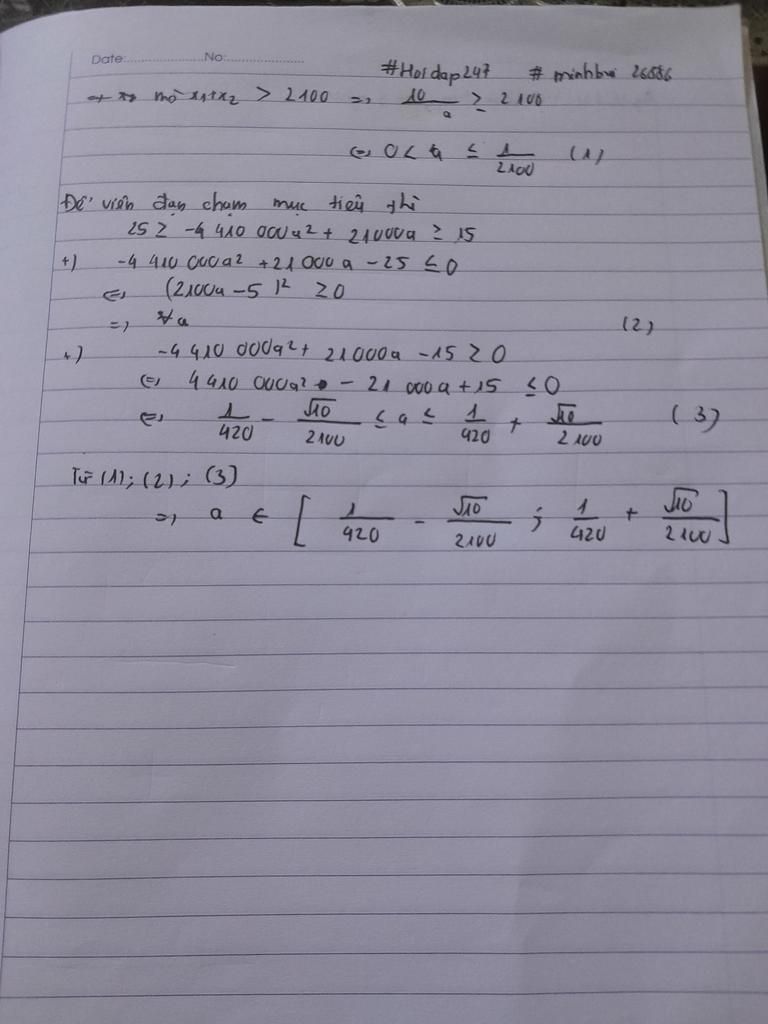 Date:....................No:....................
#Hoidap247 # minhbui 26686
mò x₁+x₂ > 2100 => 10/a ≥ 2100
<=> 0 < a ≤ 1/2100 (1)
Để viên đạn chạm mục tiêu thì
25 ≥ -4 410 000a² + 21000a ≥ 15
+) -4 410 000a² + 21 000a - 25 ≤ 0
<=> (2100a - 5)² ≥ 0
=> ∀a (2)
+) -4 410 000a² + 21000a - 15 ≥ 0
<=> 4 410 000a² - 21 000a + 15 ≤ 0
<=> 1/420 - √10/2100 ≤ a ≤ 1/420 + √10/2100 (3)
Từ (1); (2); (3)
=> a ∈ [ 1/420 - √10/2100 ; 1/420 + √10/2100 ]